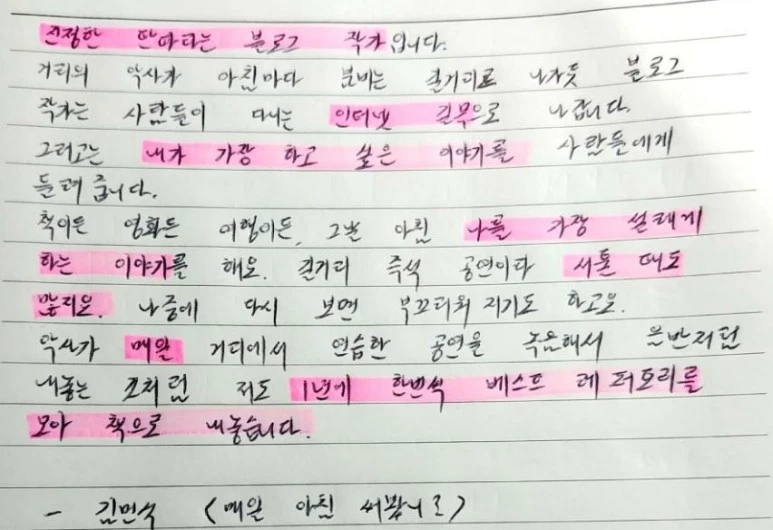 진정한 딴따라는 블로그 작가입니다.
거리의 악사가 아침마다 붐비는 길거리로 나가듯 블로그
작가는 사람들이 다니는 인터넷 길목으로 나갑니다.
그러고는 내가 가장 하고 싶은 이야기를 사람들에게
들려줍니다.
책이든 영화든 여행이든, 그날 아침 나를 가장 설레게
하는 이야기를 해요. 길거리 즉석 공연이다 서툰 때도
많지요. 나중에 다시 보면 부끄러워지기도 하고요.
악사가 매일 거리에서 연습한 공연을 녹음해서 음반처럼
내놓는 것처럼 저도 1년에 한번씩 베스트 레퍼토리를
모아 책으로 내놓습니다.
- 김민식 <매일 아침 써봤니?>